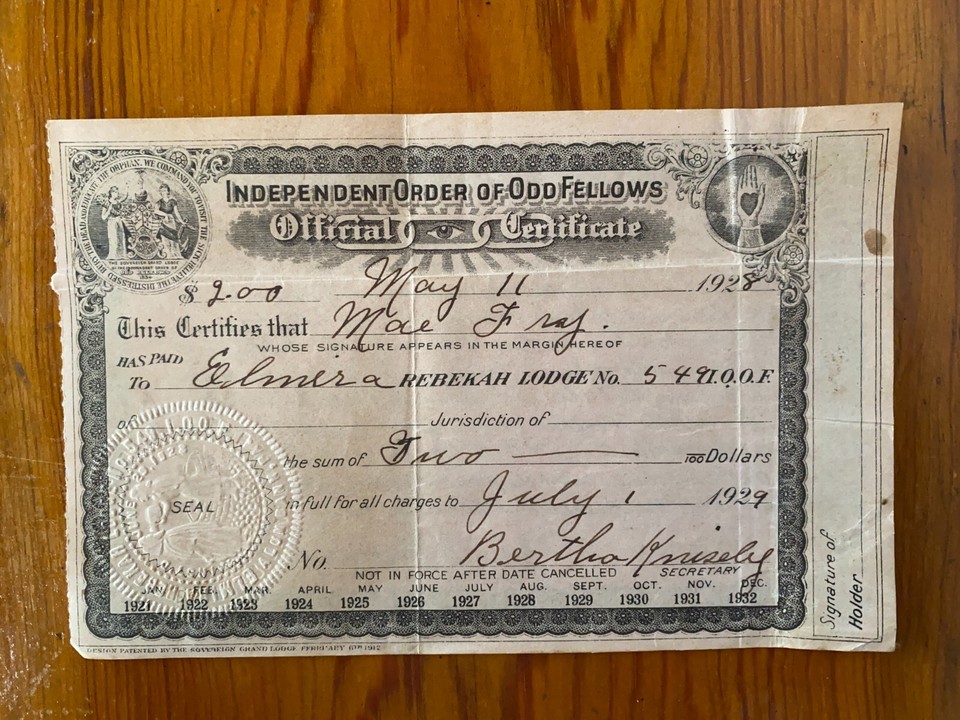 INDEPENDENT ORDER OF ODD FELLOWS
Official Certificate
AND EDUCATE THE ORPHAN. WE COMMAND YOU TO VISIT THE SICK, RELIEVE THE DISTRESSED, BURY THE DEAD
THE SOVEREIGN GRAND LODGE
OF THE INDEPENDENT ORDER OF
$ 2.00 May 11 1928
This Certifies that Mae Fray.
WHOSE SIGNATURE APPEARS IN THE MARGIN HEREOF
HAS PAID
To Elmera REBEKAH LODGE No. 549 I.O.O.F.
of Jurisdiction of
the sum of Two — 100 Dollars
in full for all charges to July 1 1929
SEAL
No. Bertha Knisely
NOT IN FORCE AFTER DATE CANCELLED SECRETARY
JAN. FEB. MAR. APRIL MAY JUNE JULY AUG. SEPT. OCT. NOV. DEC.
1921 1922 1923 1924 1925 1926 1927 1928 1929 1930 1931 1932
DESIGN PATENTED BY THE SOVEREIGN GRAND LODGE FEBRUARY 6TH 1912
Signature of
Holder